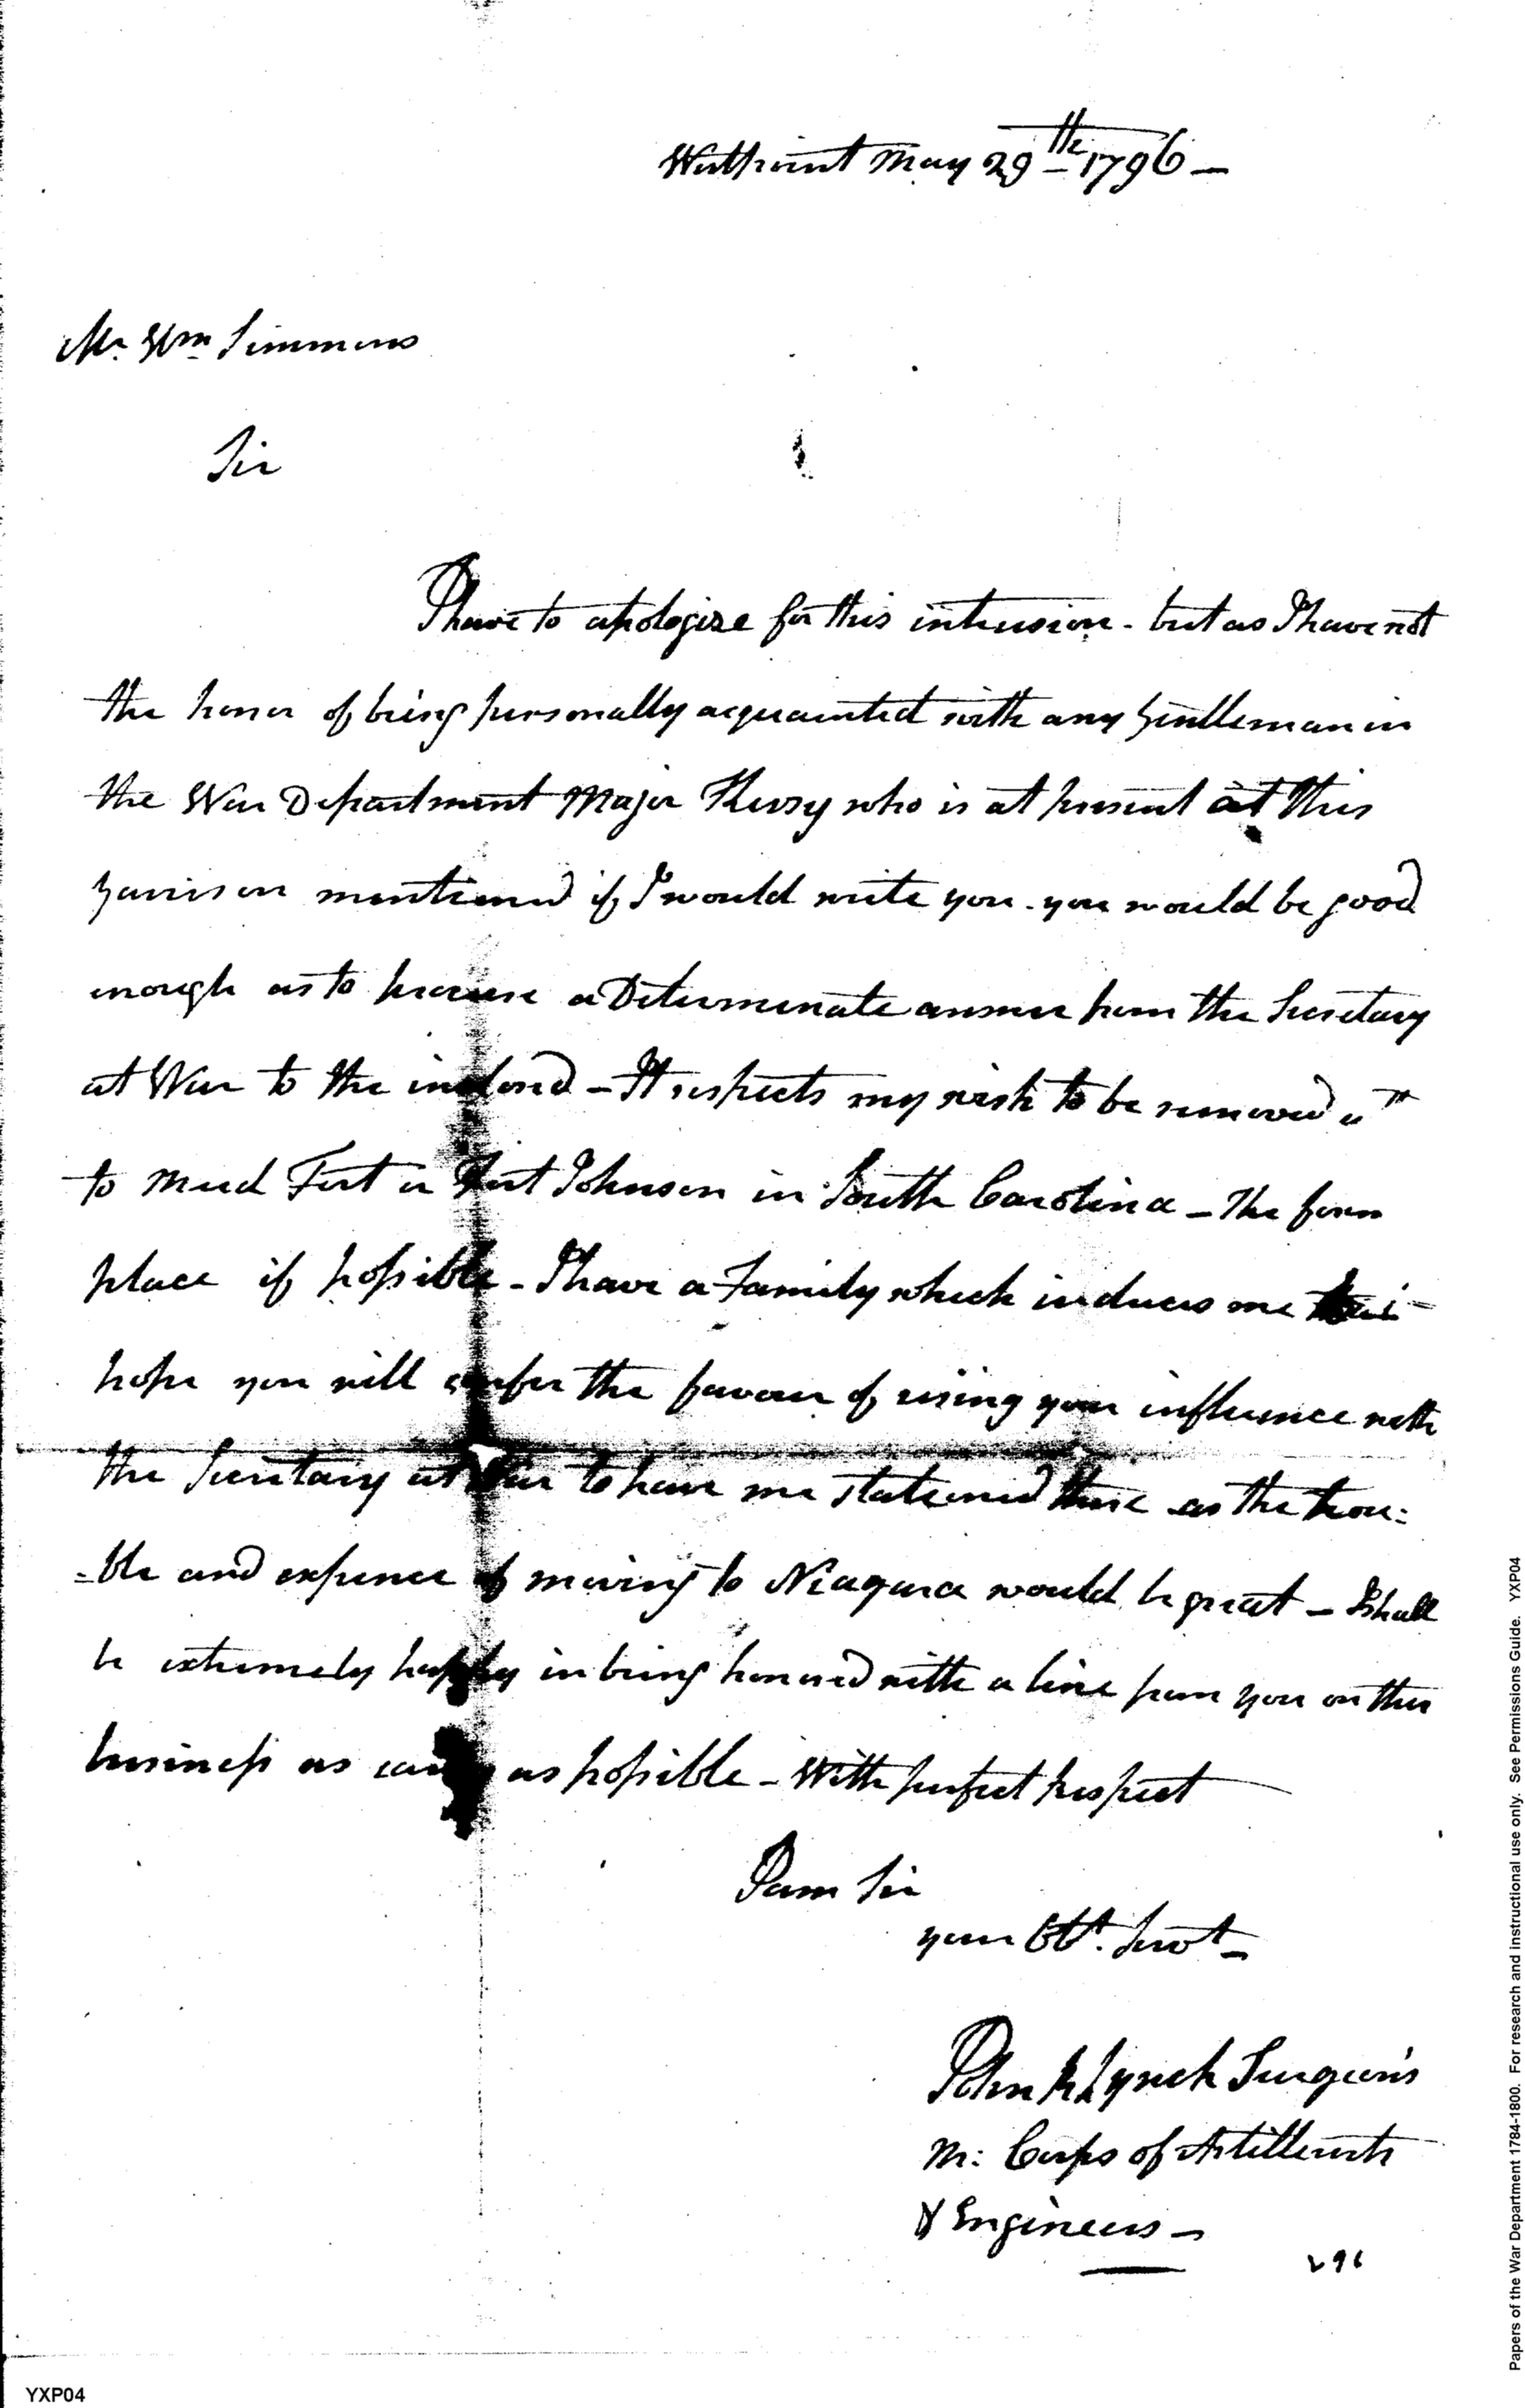 Westpoint May 29th 1796 –
Mr. Wm Simmons
Sir
I have to apologize for this intrusion - but as I have not
the honor of being personally acquainted with any Gentleman in
the War Department Major Kersy who is at present at this
garrison mentioned if I would write you - you would be good
enough as to procure a Determinate answer from the Secretary
at War to the inclosed – It respects my wish to be removed
to Mud Fort or Fort Johnson in South Carolina – The form
place if possible – I have a Family which induces me
hope you will confer the favour of using your influence with
the Secretary at War to have me stationed there as the trou:
=ble and expence of moving to Niagara would be great – I shall
be extremely happy in being honored with a line from you on this
business as early as possible – With perfect respect
I am Sir
your Obt. Servt –
John R Lynch Surgeon's
M: Corps of Artillerists
& Engineers –
296
Papers of the War Department 1784-1800. For research and instructional use only. See Permissions Guide. YXP04
YXP04